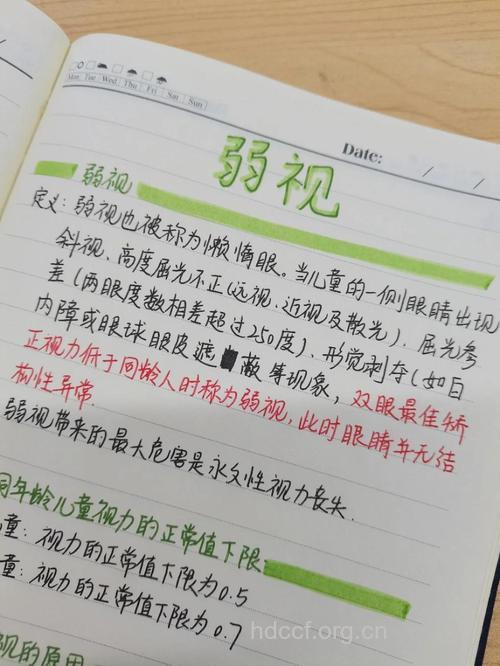 Mon Tue Wed Thu Fri Sat Sun
Date: / /
弱视
弱视
定义：弱视也被称为懒惰眼。当儿童的一侧眼睛出现
斜视、高度屈光不正(远视、近视及散光)、屈光参
差(两眼度数相差超过250度)、形觉剥夺(如白
内障或眼球眼皮遮蔽等现象，双眼最佳矫
正视力低于同龄人时称为弱视，此时眼睛并无结
构性异常.
弱视带来的最大危害是永久性视力丧失.
同年龄儿童视力的正常值下限
童：视力的正常值下限为0.5
童：视力的正常值下限为0.7
视的原因
hdccf.org.cn